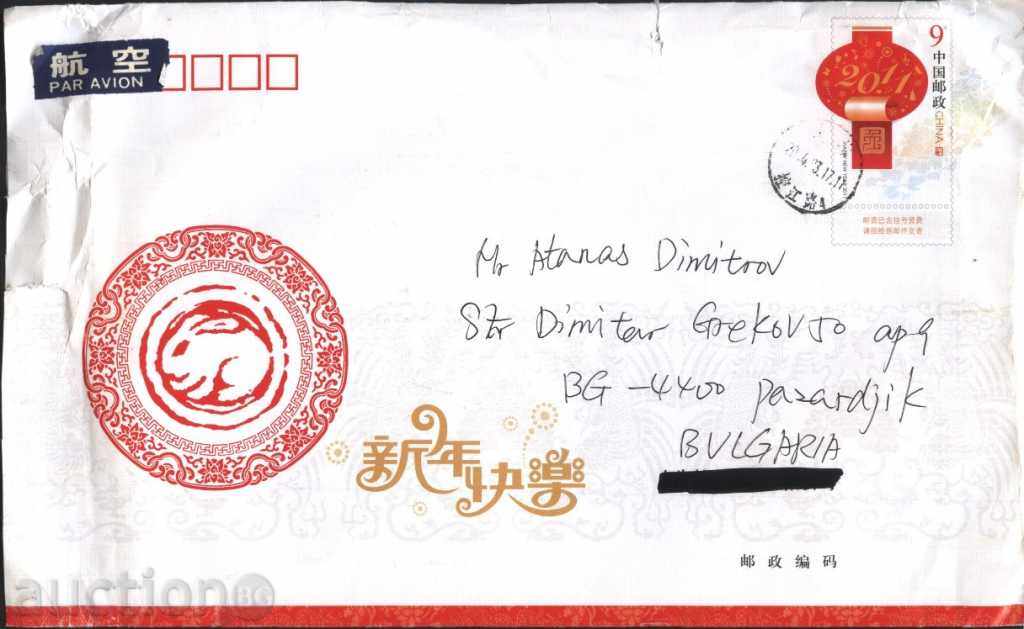 航空
PAR AVION
2011
9
中国邮政
CHINA
邮资已含挂号资费
请图给邮件交寄
Mr Atanas Dimitrov
Str Dimitar Grekov 50 ap 9
BG-4400 Pazardjik
BULGARIA
新年快樂
邮政编码
auction BG